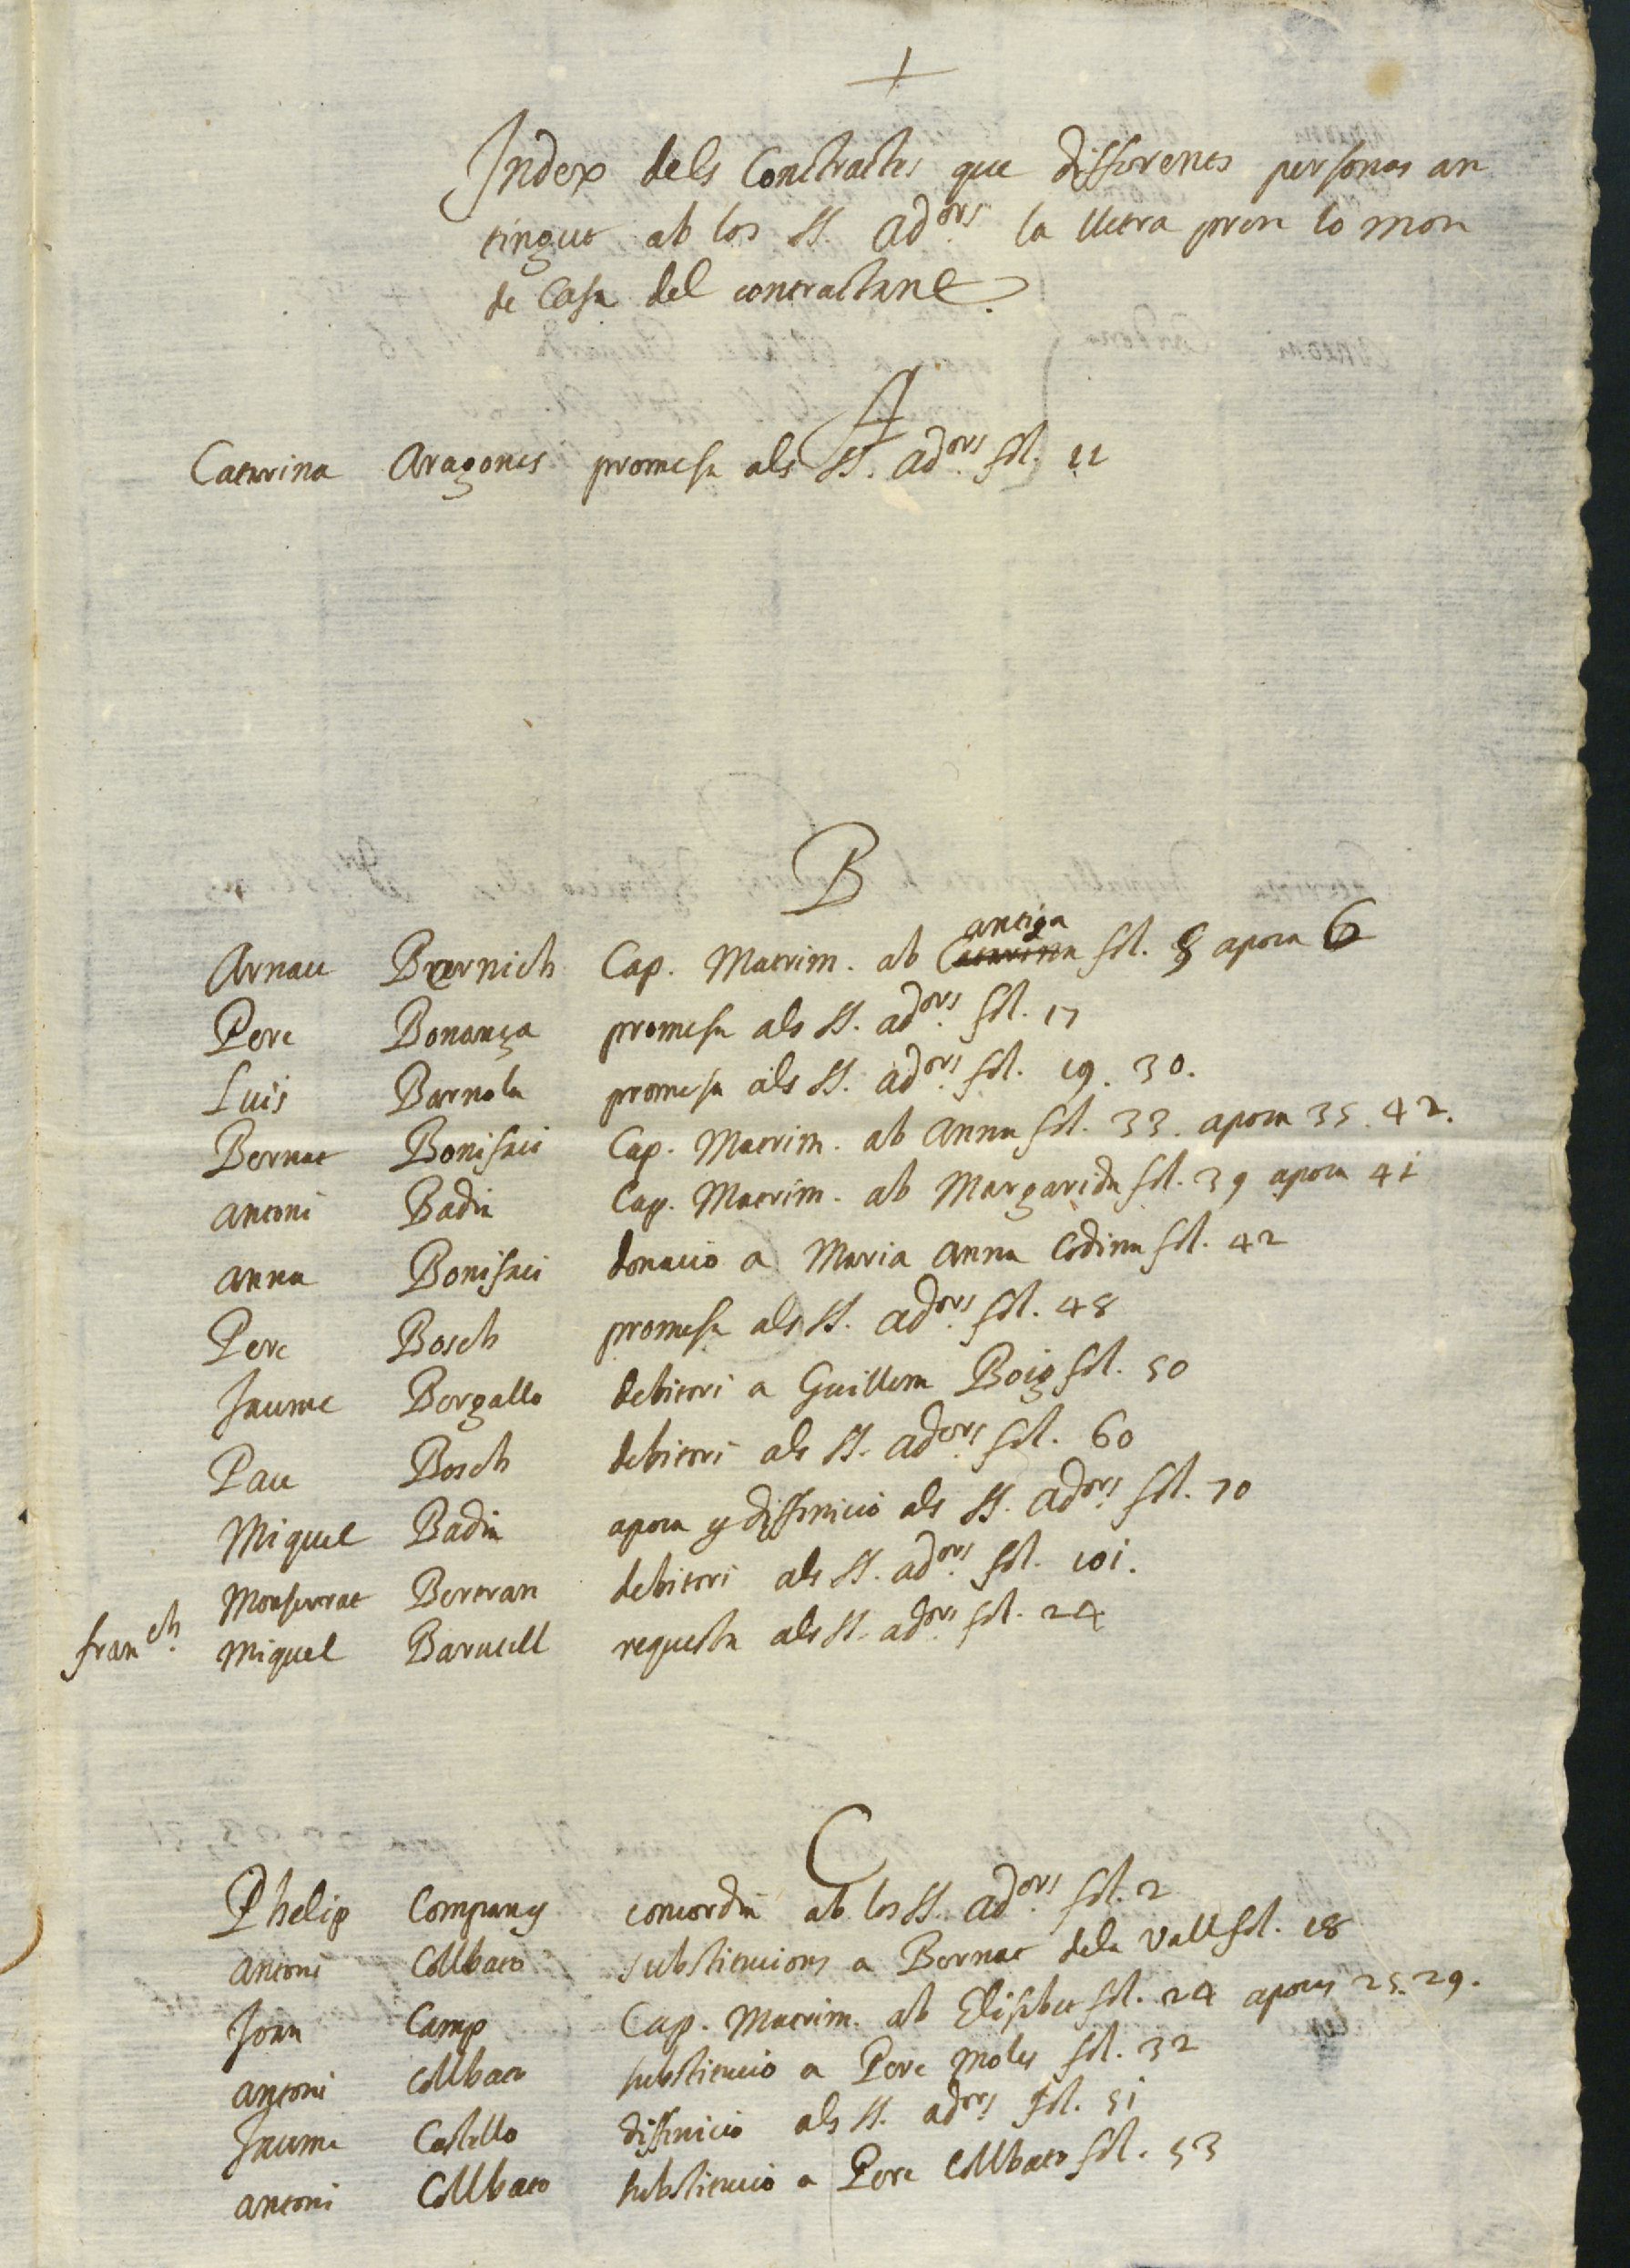 +
Index dels Contractes que differents personas an
tingut ab los SS. Ad.ors la lletra pren lo nom
de Casa del contractant.
A
Caterina Aragones promesa als SS. Ad.ors fol. 11
B
antiga
Arnau Bernich Cap. Matrim. ab Caterina fol. 8 apoca 6
Pere Bonança promesa als SS. ad.ors fol. 17
Luis Barnola promesa als SS. ad.ors fol. 19. 30.
Bernat Bonifaci Cap. Matrim. ab Anna fol. 33. apoca 35. 42.
Antoni Badia Cap. Matrim. ab Margarida fol. 39 apoca 41
Anna Bonifaci donacio a Maria Anna Codina fol. 42
Pere Bosch promesa als SS. Ad.ors fol. 48
Jaume Borgallo debitori a Guillem Boig fol. 50
Pau Bosch debitori als SS. ad.ors fol. 60
Miquel Badia apoca y diffinicio als SS. Ad.ors fol. 70
Monserrat Bertran debitori als SS. ad.ors fol. 101.
fran.ch Miquel Barucell requesta als SS. ad.ors fol. 24
C
Phelip Company concordia ab los SS. Ad.ors fol. 2
Antoni Collbato substitucions a Bernat dela Vall fol. 18
Joan Camp Cap. Matrim. ab Elisabet fol. 24 apocas 25. 29.
Antoni Collbato substitucio a Pere Moles fol. 32
Jaume Castello diffinicio als SS. ad.ors fol. 51
Antoni Collbato substitucio a Pere Collbato fol. 53